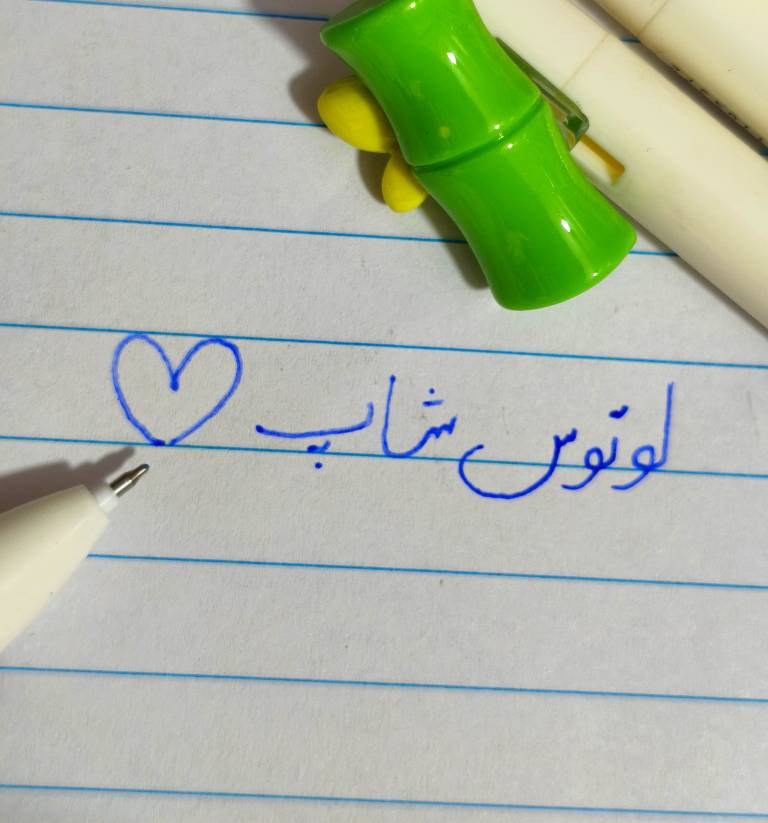 لوتوس شاپ ♡